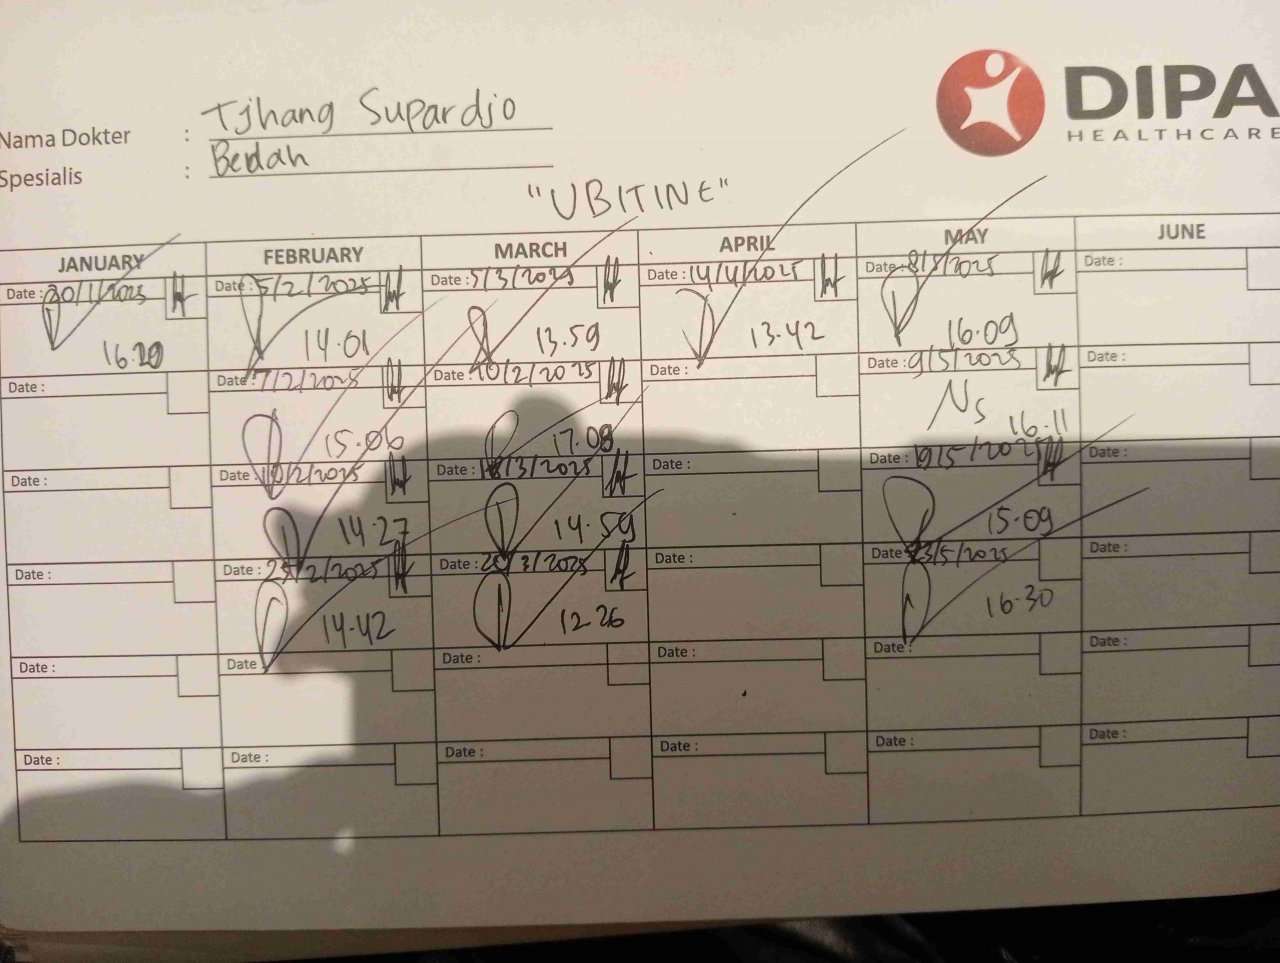 DIPA
HEALTHCARE
Nama Dokter : Tjhang Supardjo
Spesialis : Bedah
"UBITINE"
JANUARY FEBRUARY MARCH APRIL MAY JUNE
Date : 30/1/2025 Date : 5/2/2025 Date : 5/3/2025 Date : 14/4/2025 Date : 8/5/2025 Date :
16.20 14.01 13.59 13.42 16.09
Date : Date : 7/2/2025 Date : 10/2/2025 Date : Date : 9/5/2025 Date :
15.06 17.08 Ns 16.11
Date : Date : 10/2/2025 Date : 18/3/2025 Date : Date : 19/5/2025 Date :
14.27 14.59 15.09
Date : Date : 25/2/2025 Date : Date : Date : 23/5/2025 Date :
14.42 12.26 16.30
Date : Date Date : Date : Date : Date :
Date : Date : Date : Date : Date : Date :